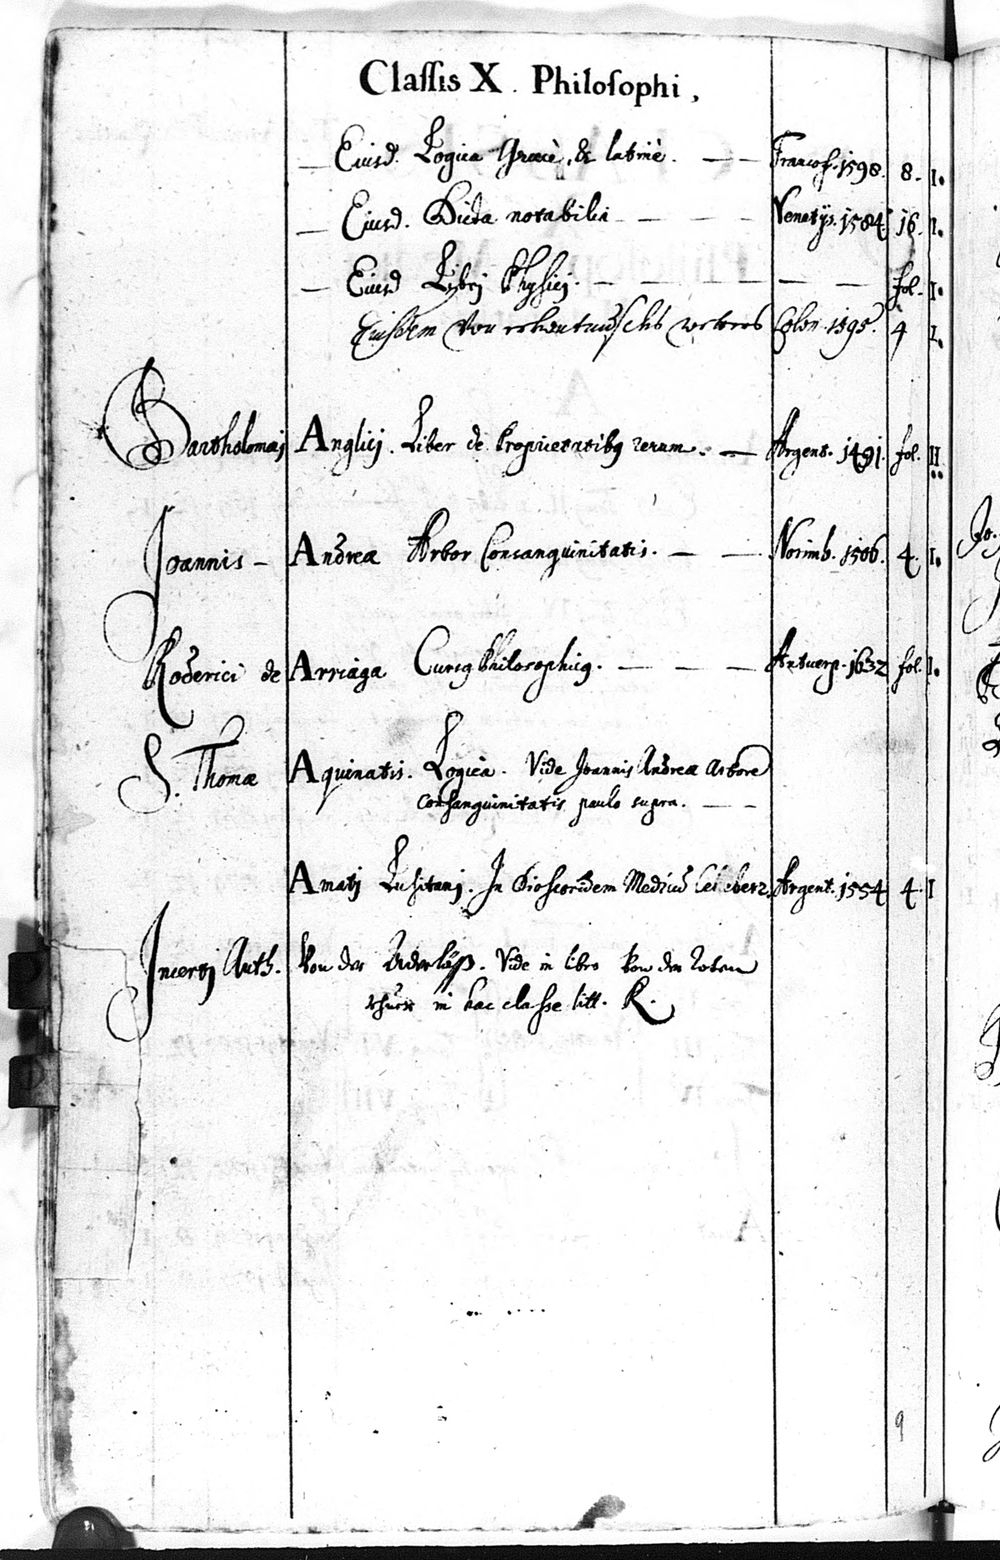 Classis X. Philosophi,
— Eiusd. Logica Graecè, & latinè. — — Francof. 1598. 8. I.
— Eiusd. Dicta notabilia — — — — Venetijs. 1584 16. I.
— Eiusd Libri Physicj. — — — — — — fol. I.
Eiusdem Von Colon. 1595. 4 I.
Bartholomaej Anglicj. Liber de Proprietatibq rerum. — Argent. 1491. fol. II
Joannis — Andreæ Arbor Consanguinitatis. — — Norimb. 1506. 4. I.
Roderici de Arriaga Cursq Philosophicq. — — — Antuerp. 1632 fol. I.
S. Thomæ Aquinatis. Logica. Vide Joannis Andreæ Arbore
consanguinitatis paulo supra. — —
Amatj Lusitanj. In Dioscoridem Argent. 1554 4. I
Incertj Auth. Von der Aderläß. Vide in libro Von der Roten
in hac classe litt. R.
9